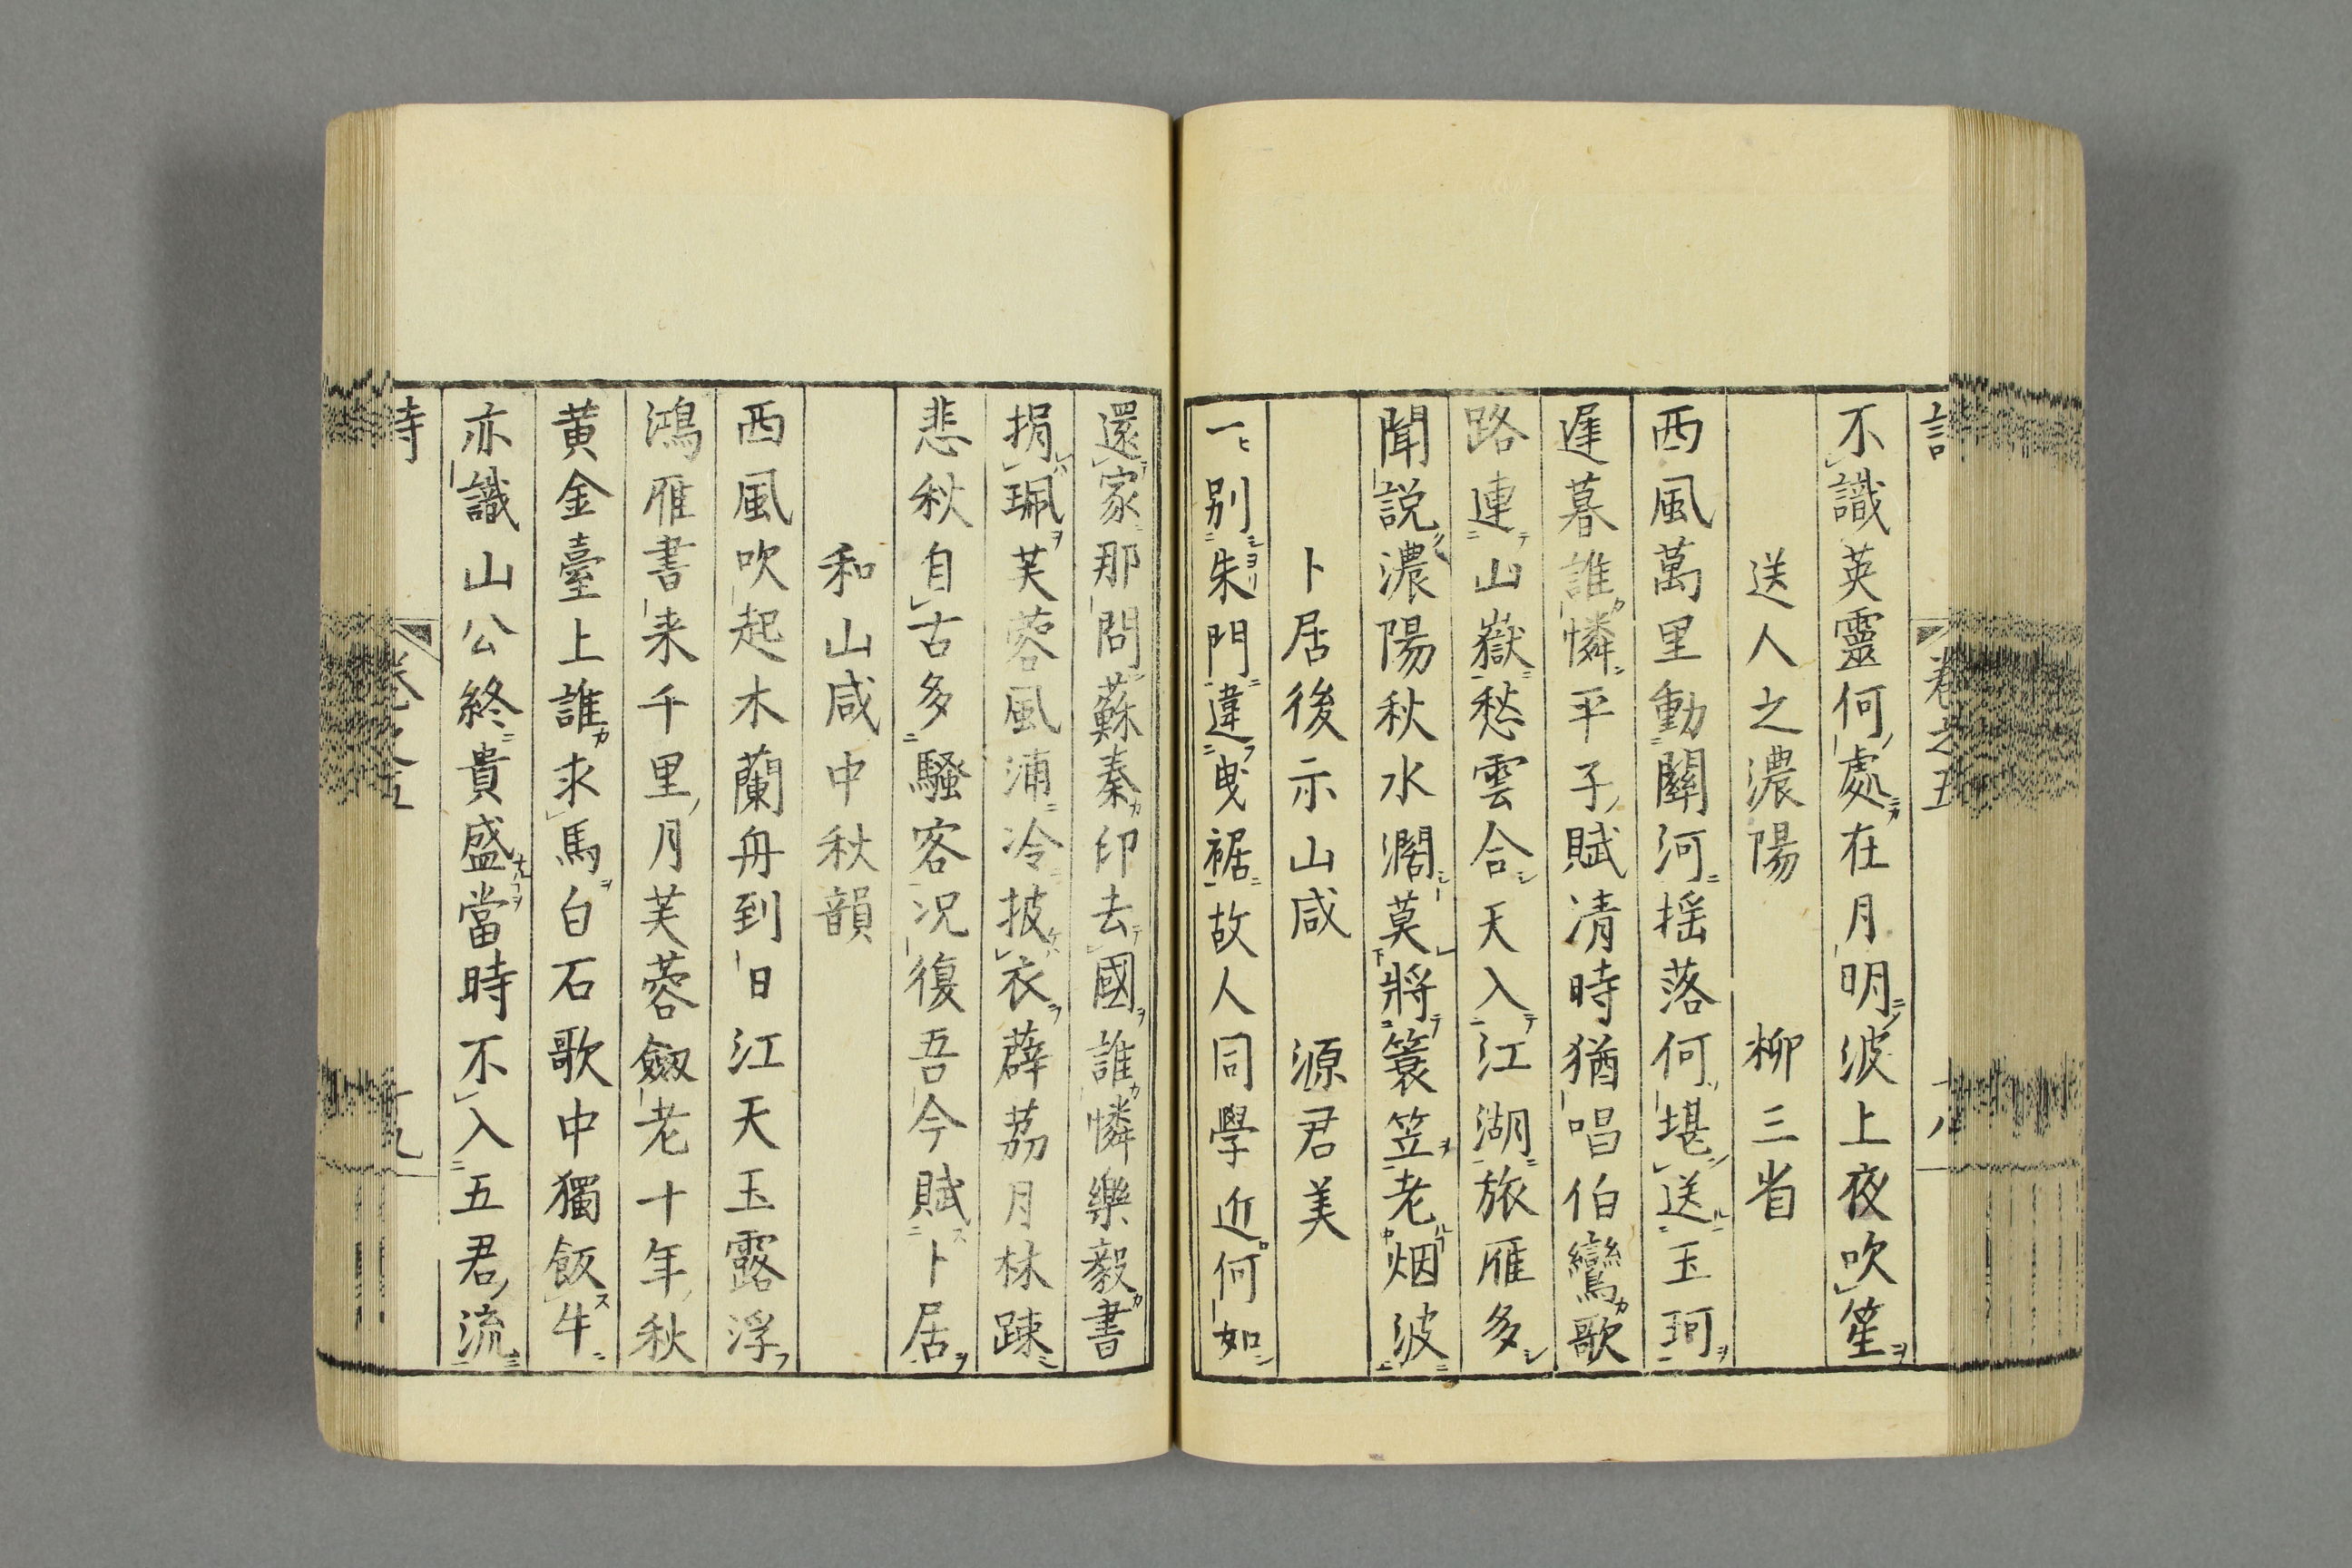 不識英靈何處在月明波上夜吹笙
送人之濃陽　柳三省
西風萬里動關河揺落何堪送玉珂
遅暮誰憐平子賦清時猶唱伯鸞歌
路連山嶽愁雲合天入江湖旅雁多
聞説濃陽秋水濶莫將簑笠老烟波
卜居後示山咸　源君美
一別朱門違曳裾故人同學近何如
還家那問蘇秦印去國誰憐樂毅書
捐珮芙蓉風浦冷披衣薜荔月林踈
悲秋自古多騷客况復吾今賦卜居
和山咸中秋韻
西風吹起木蘭舟到日江天玉露浮
鴻雁書来千里月芙蓉劔老十年秋
黄金臺上誰求馬白石歌中獨飯牛
亦識山公終貴盛當時不入五君流